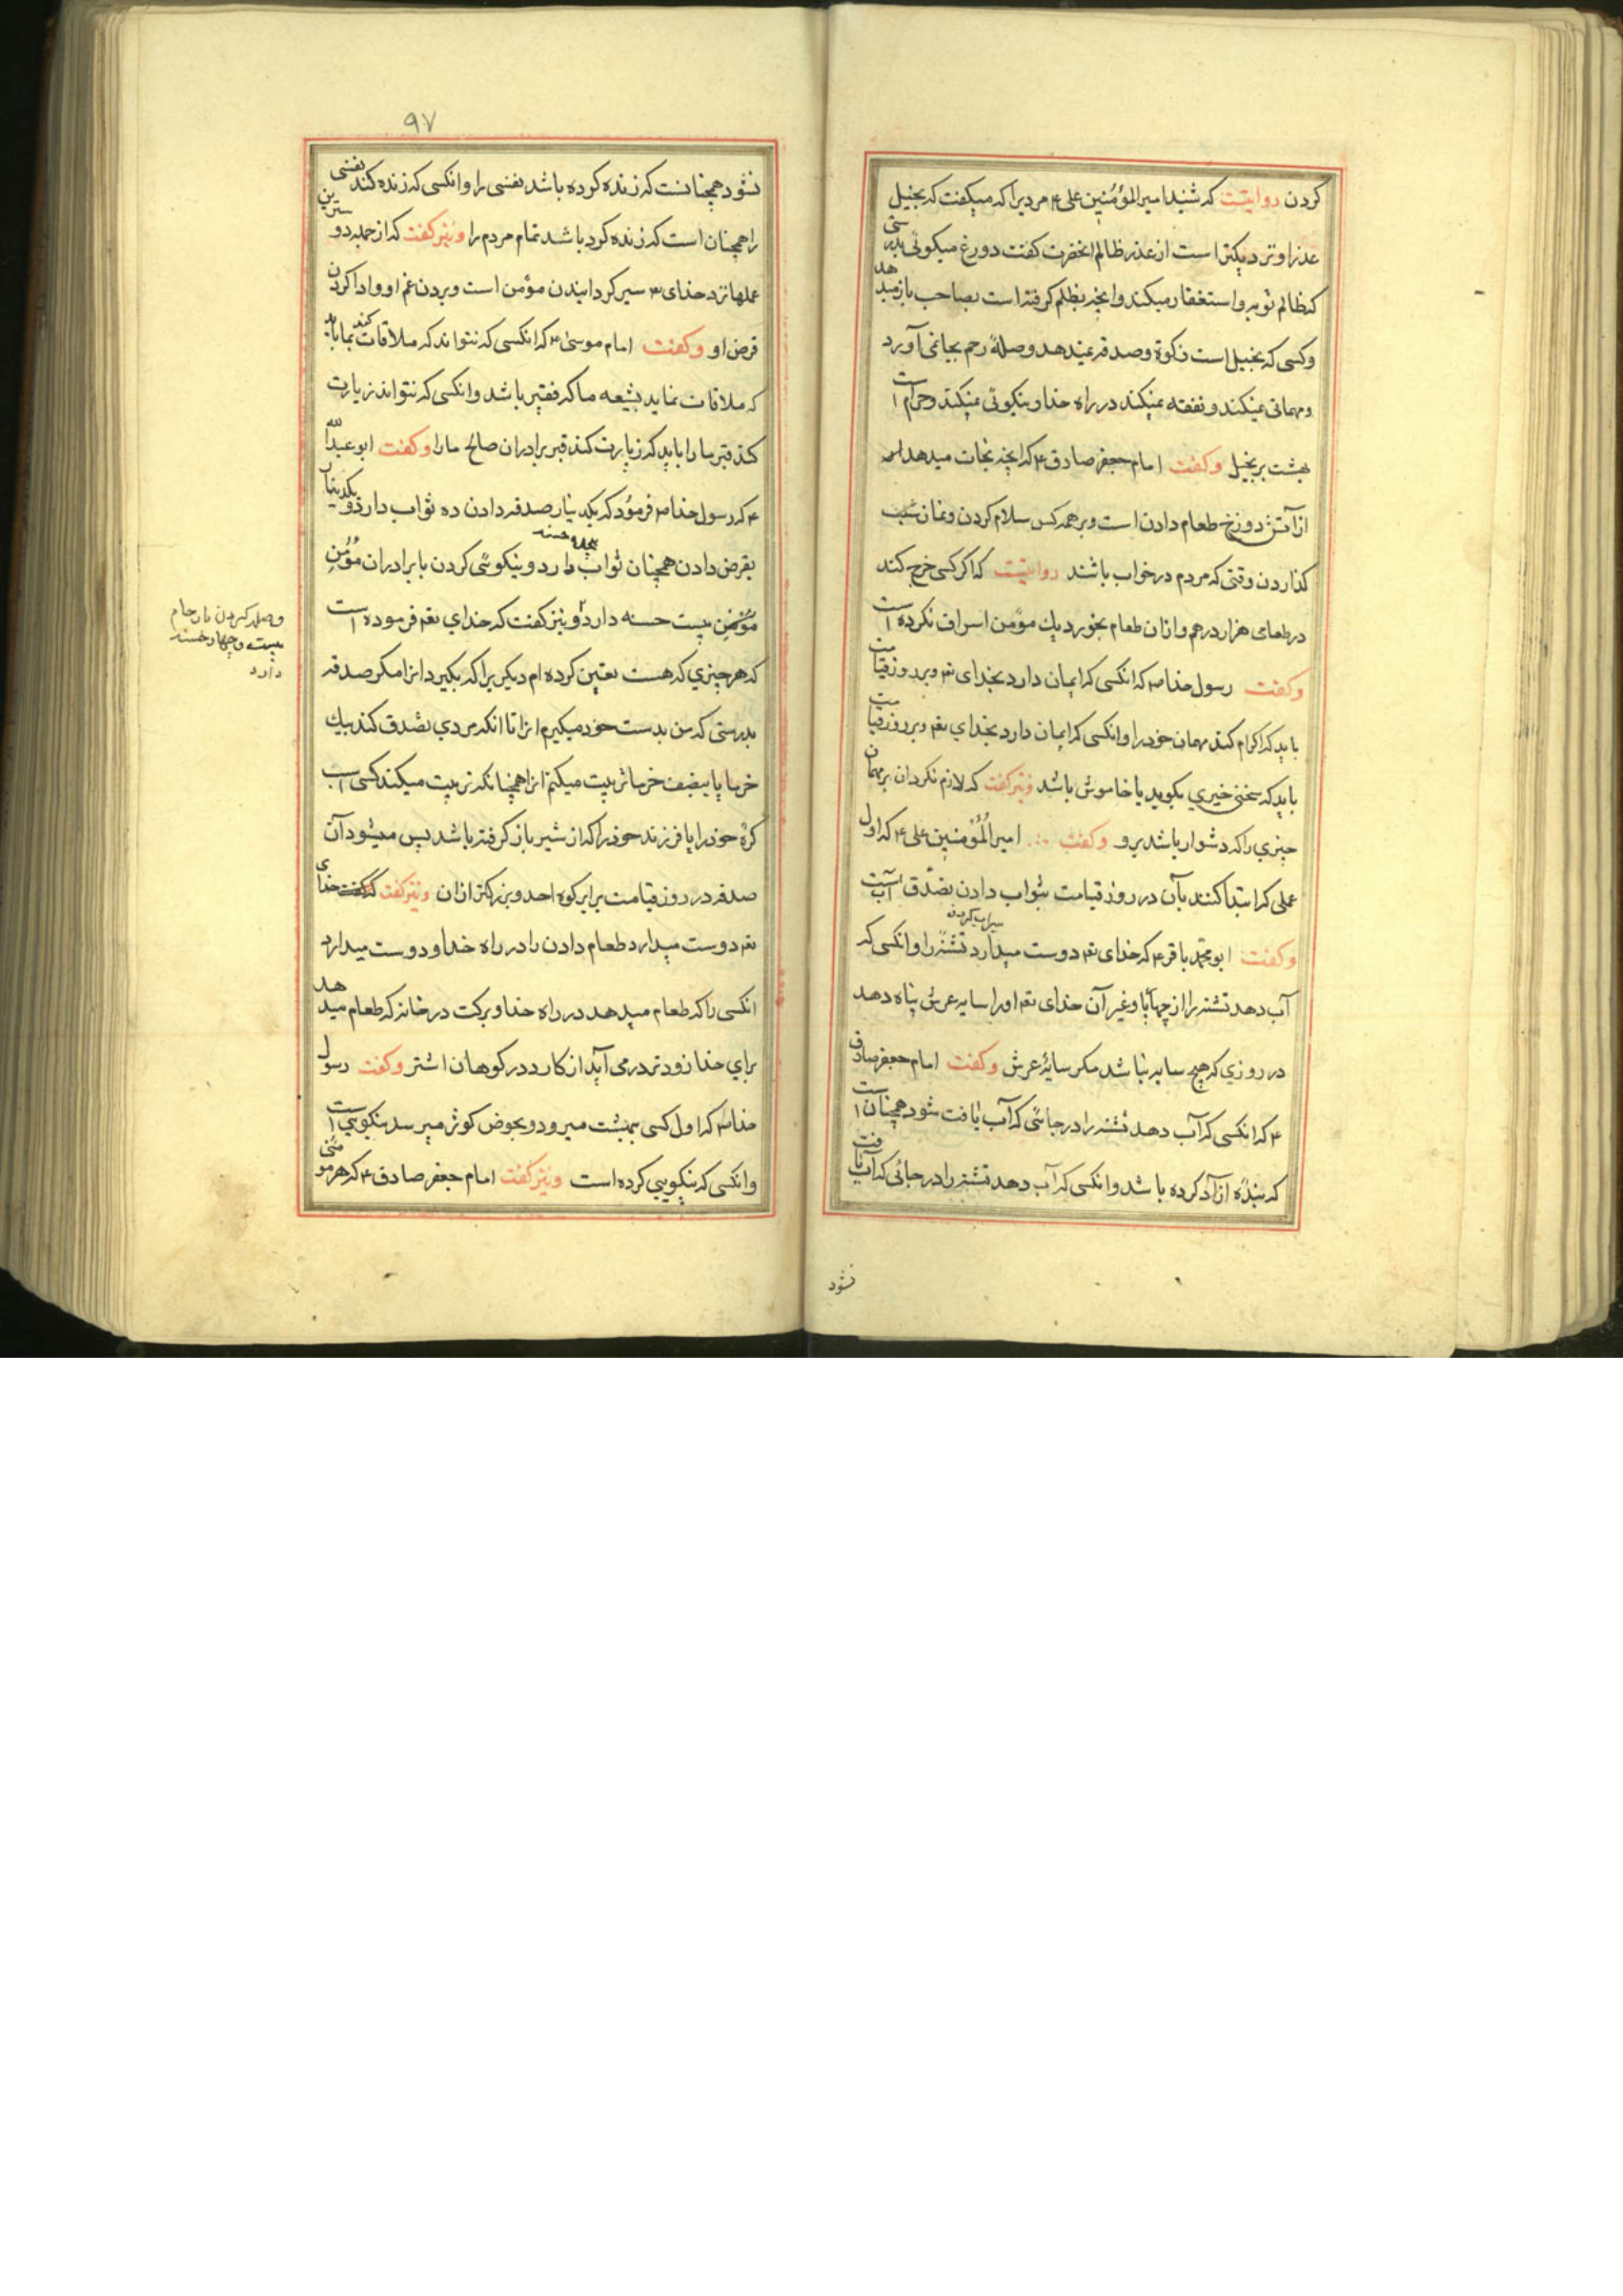 کردن روایتست که شنید امیرالمؤمنین علی ۴ مردیرا که میکفت که بخیل
عذر او تردیکتر است از عذر ظالم انحضرت کفت دورغ میکوئی بدرستی
که ظالم توبه و استغفار میکند وانچه بظلم کرفته است بصاحب بازمیدهد
وکسی که بخیل است زکوة وصدقه نمیدهد وصلهٔ رحم بجا نمی آورد
ومهمانی نمیکند ونفقه نمیکند در راه خدا ونیکوئی نمیکند وحرام است
بهشت بر بخیل وکفت امام جعفر صادق ۴ که انچه نجات میدهد
از آتش دوزخ طعام دادن است وبر همه کس سلام کردن ونماز شب
کذاردن وقتی که مردم در خواب باشند روایتست که اکر کسی خرج کند
در طعامی هزار درهم وازان طعام بخورد یك مؤمن اسراف نکرده است
وکفت رسول خدا ص که انکسی که ایمان دارد بخدای تع وبروز قیامت
باید که اکرام کند مهمان خود را وانکسی که ایمان دارد بخدای تع وبروز قیامت
باید که سخن خیری بکوید یا خاموش باشد ونیز کفت که لازم نکردان بر مهمان
چیزی را که دشوار باشد برو وکفت امیر المؤمنین علی ۴ که اول
عملی که ابتدا کنند بآن در روز قیامت بثواب دادن تصدق آبست
سیراب کردن
وکفت ابو محمد باقر ۴ که خدای تع دوست میدارد تشنه را وانکسی که
آب دهد تشنه را از چهارپا وغیر آن خدای تع اورا سایه عرش پناه دهد
در روزی که هیچ سایه نباشد مکر سایهٔ عرش وکفت امام جعفر صادق
۴ که انکسی که آب دهد تشنه را در جائی که آب یافت شود همچنان است
که بندهٔ ازاد کرده باشد وانکسی که آب دهد تشنه را در جائی که آب یافت
نشود
۹۷
نشود همچنانست که زنده کرده باشد نفسی را وانکسی که زنده کند نفسی
را همچنان است که زنده کرد باشد تمام مردم را ونیز کفت که از جمله دوسترین
عملها نزد خدای سیر کردانیدن مؤمن است وبردن غم او وادا کردن
قرض او وکفت امام موسی ۴ که انکسی که نتواند که ملاقات کند بما باید
که ملاقات نماید بشیعه ما که فقیر باشد وانکسی که نتواند زیارت
کند قبر ما را باید که زیارت کند قبر برادران صالح ما را وکفت ابو عبدالله
۴ که رسول خدا ص فرمود که یکدینار صدقه دادن ده ثواب دارد ویکدینار
بقرض دادن همچنان ثواب دارد ونیکوئی کردن با برادران مؤمن
مؤمن بیست حسنه دارد ونیز کفت که خدای تع فرموده است
وصله کردن بارحام
بیست وچهار حسنه
دارد
که هر چیزی که هست تعین کرده ام دیکریرا که بکیرد انرا مکر صدقه
بدرستی که من بدست خود میکیرم انرا تا انکه مردی تصدق کند بیك
خرما یا بنصف خرما تربیت میکنم انرا همچنانکه تربیت میکند کسی اسب
کرهٔ خود را یا فرزند خود را که از شیر باز کرفته باشد پس میشود آن
صدقه در روز قیامت برابر کوه احد وبزرکتر ازان ونیز کفت که خدای
تع دوست میدارد طعام دادن را در راه خدا ودوست میدارد
انکسی را که طعام میدهد در راه خدا وبرکت در خانه که طعام میدهد
برای خدا زودتر در می آید از کارد در کوهان اشتر وکفت رسول
خدا ص که اول کسی ببهشت میرود وبحوض کوثر میرسد نیکویی است
وانکسی که نیکویی کرده است ونیز کفت امام جعفر صادق ۴ که هر مومنی